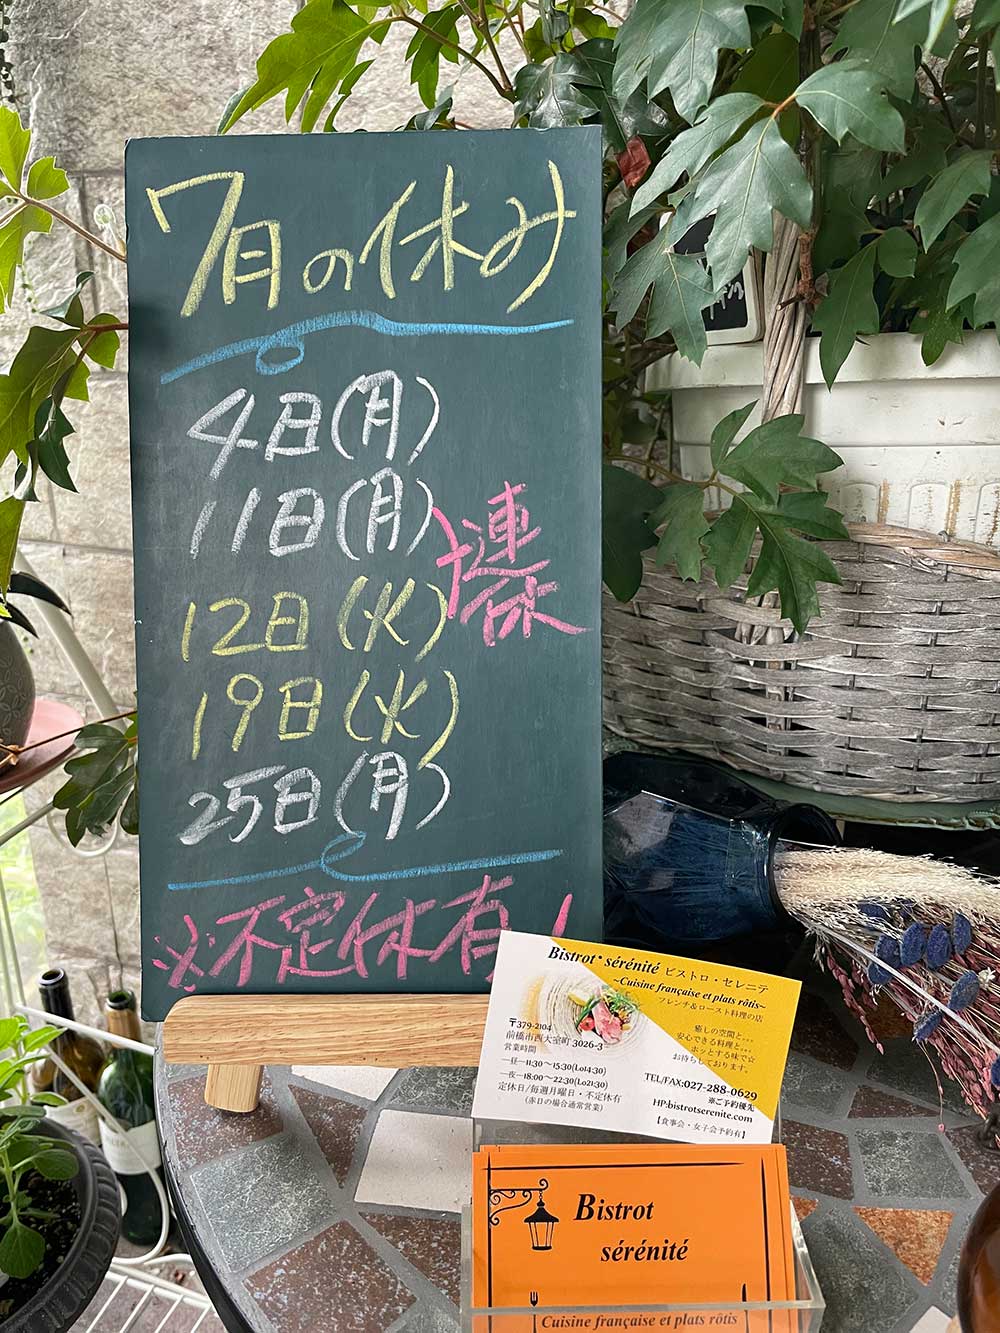 7月の休み
4日(月)
11日(月)
12日(火)
連休
19日(火)
25日(月)
※不定休有!
Bistrot sérénité ビストロ・セレニテ
~Cuisine française et plats rôtis~
フレンチ&ロースト料理の店
癒しの空間と…
安心できる料理と…
ホッとする味で☆
お待ちしております。
〒379-2104
前橋市西大室町 3026-3
営業時間
―昼―11:30~15:30(Lo14:30)
―夜―18:00~22:30(Lo21:30)
定休日/毎週月曜日・不定休有
(赤日の場合通常営業)
TEL/FAX:027-288-0629
※ご予約優先
HP:bistrotserenite.com
【食事会・女子会予約有】
Bistrot
sérénité
Cuisine française et plats rôtis